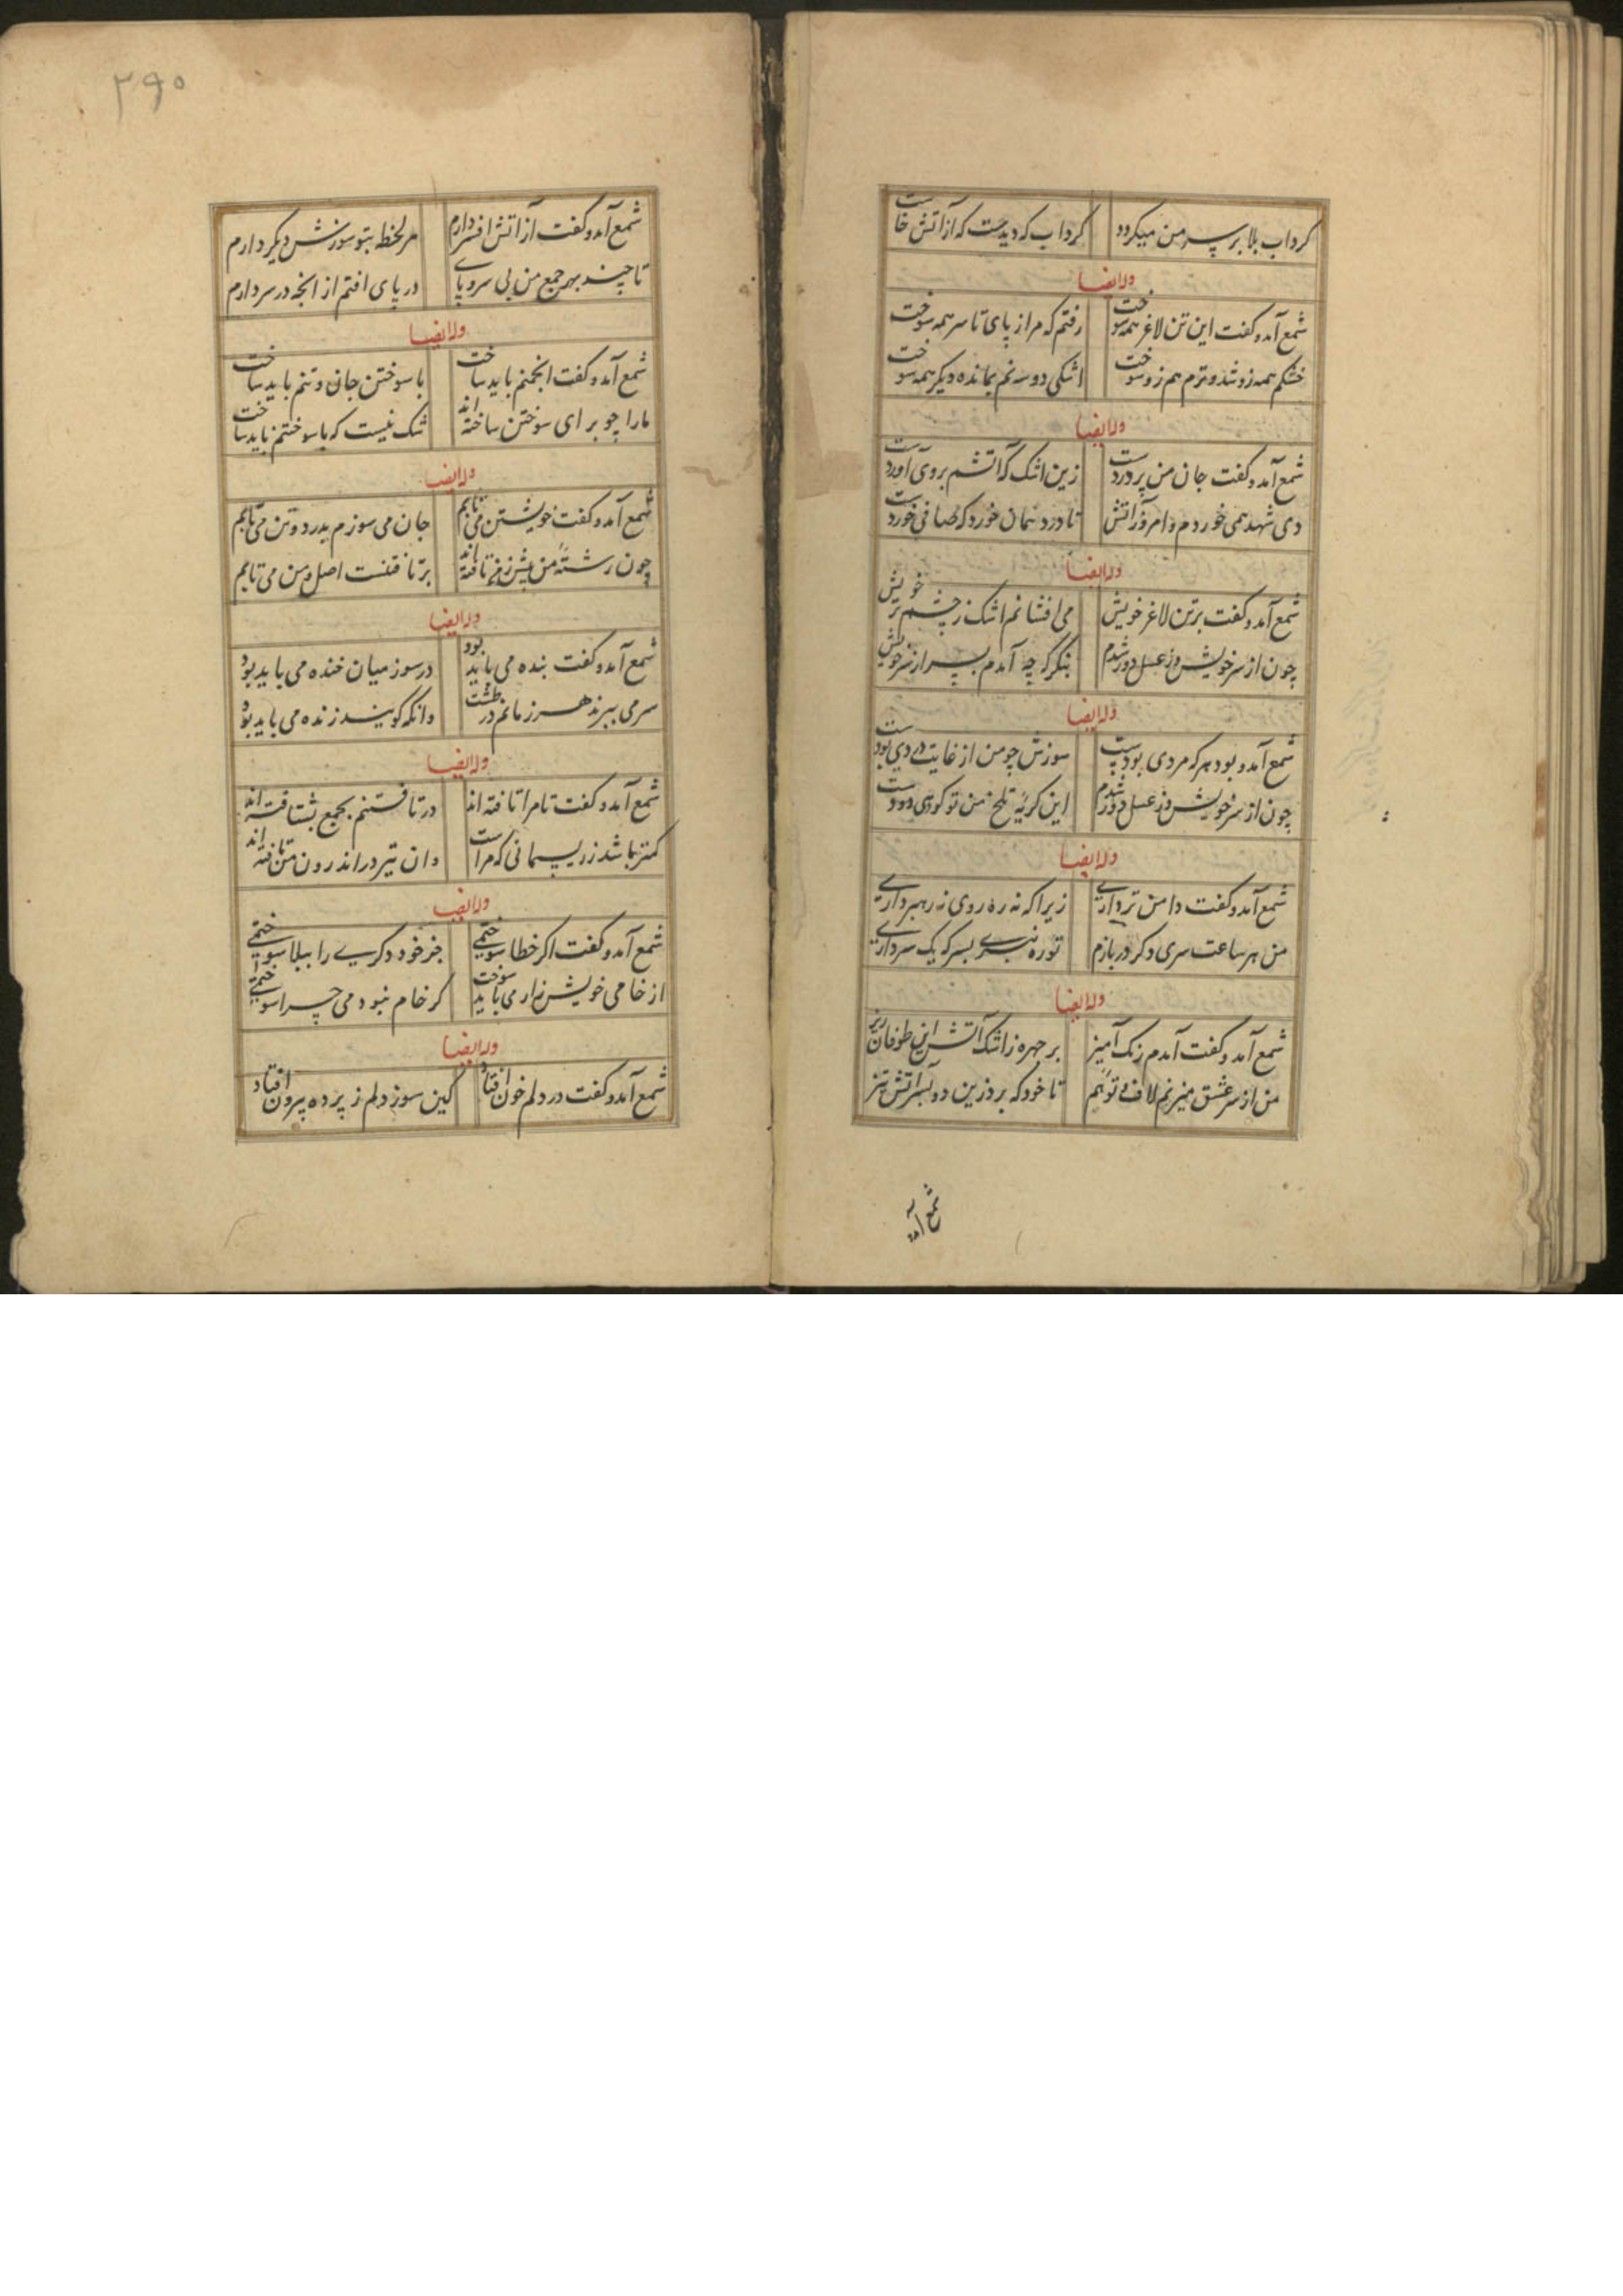 کرداب بلا بر سر من میکردد کرداب که دیدست که از آتش خاست
وله ایضا
شمع آمد و کفت این تن لاغر همه سوخت رفتم که مرا ز پای تا سر همه سوخت
خشکم همه زو شد و ترم هم زو سوخت اشکی دو سه نم بمانده دیکر همه سوخت
وله ایضا
شمع آمد و کفت جان من پر دردست زین اشک که آتشم بروی آوردست
دی شهد همی خوردم و امروز آتش تا درد همان خورد که صافی خوردست
وله ایضا
شمع آمد و کفت بر تن لاغر خویش می افشانم اشک ز چشم تر خویش
چون از سر خویش وز عسل دور شدم بنکر که چه آمدم بسر از سر خویش
وله ایضا
شمع آمد و بود هر که مردی بودست سوزش چو من از غایت دردی بودست
چون از سر خویش وز عسل دور شدم این کریه تلخ من تو کوئی
وله ایضا
شمع آمد و کفت دامن تر داری زیرا که نه ره روی نه رهبر داری
من هر ساعت سری دکر دربازم تو ره نبری بسر که یک سر داری
وله ایضا
شمع آمد و کفت آمدم رنک آمیز بر چهره ز اشک آتشین طوفان ریز
من از سر عشق میزنم لاف و توهم تا خود که برد زین دو بسر آتش تیز
شمع آمد
۲۹۰
شمع آمد و کفت از آتش افسر دارم هر لحظه بتو سوزش دیکر دارم
تا چند بهر جمع من بی سر و پای در پای افتم از انچه در سر دارم
وله ایضا
شمع آمد و کفت انجمنم باید ساخت با سوختن جان و تنم باید ساخت
ما را چو برای سوختن ساخته اند شک نیست که با سوختنم باید ساخت
وله ایضا
شمع آمد و کفت خویشتن می تابم جان می سوزم بدرد و تن می تابم
چون رشته من پیش ز من تافته اند بر تافتنست اصل و من می تابم
وله ایضا
شمع آمد و کفت بنده می باید بود در سوز میان خنده می باید بود
سر می ببرند هر زمانم در طشت وانکه کویند زنده می باید بود
وله ایضا
شمع آمد و کفت تا مرا تافته اند در تافتنم بجمع بشتافته اند
کمتر باشد ز ریسمانی که مراست وان نیز در اندرون من تافته اند
وله ایضا
شمع آمد و کفت اکر خطا سوختمی جز خود دکری را ببلا سوختمی
از خامی خویش زار می باید سوخت کر خام نبودمی چرا سوختمی
وله ایضا
شمع آمد و کفت در دلم خون افتاد کین سوز دلم ز پرده بیرون افتاد